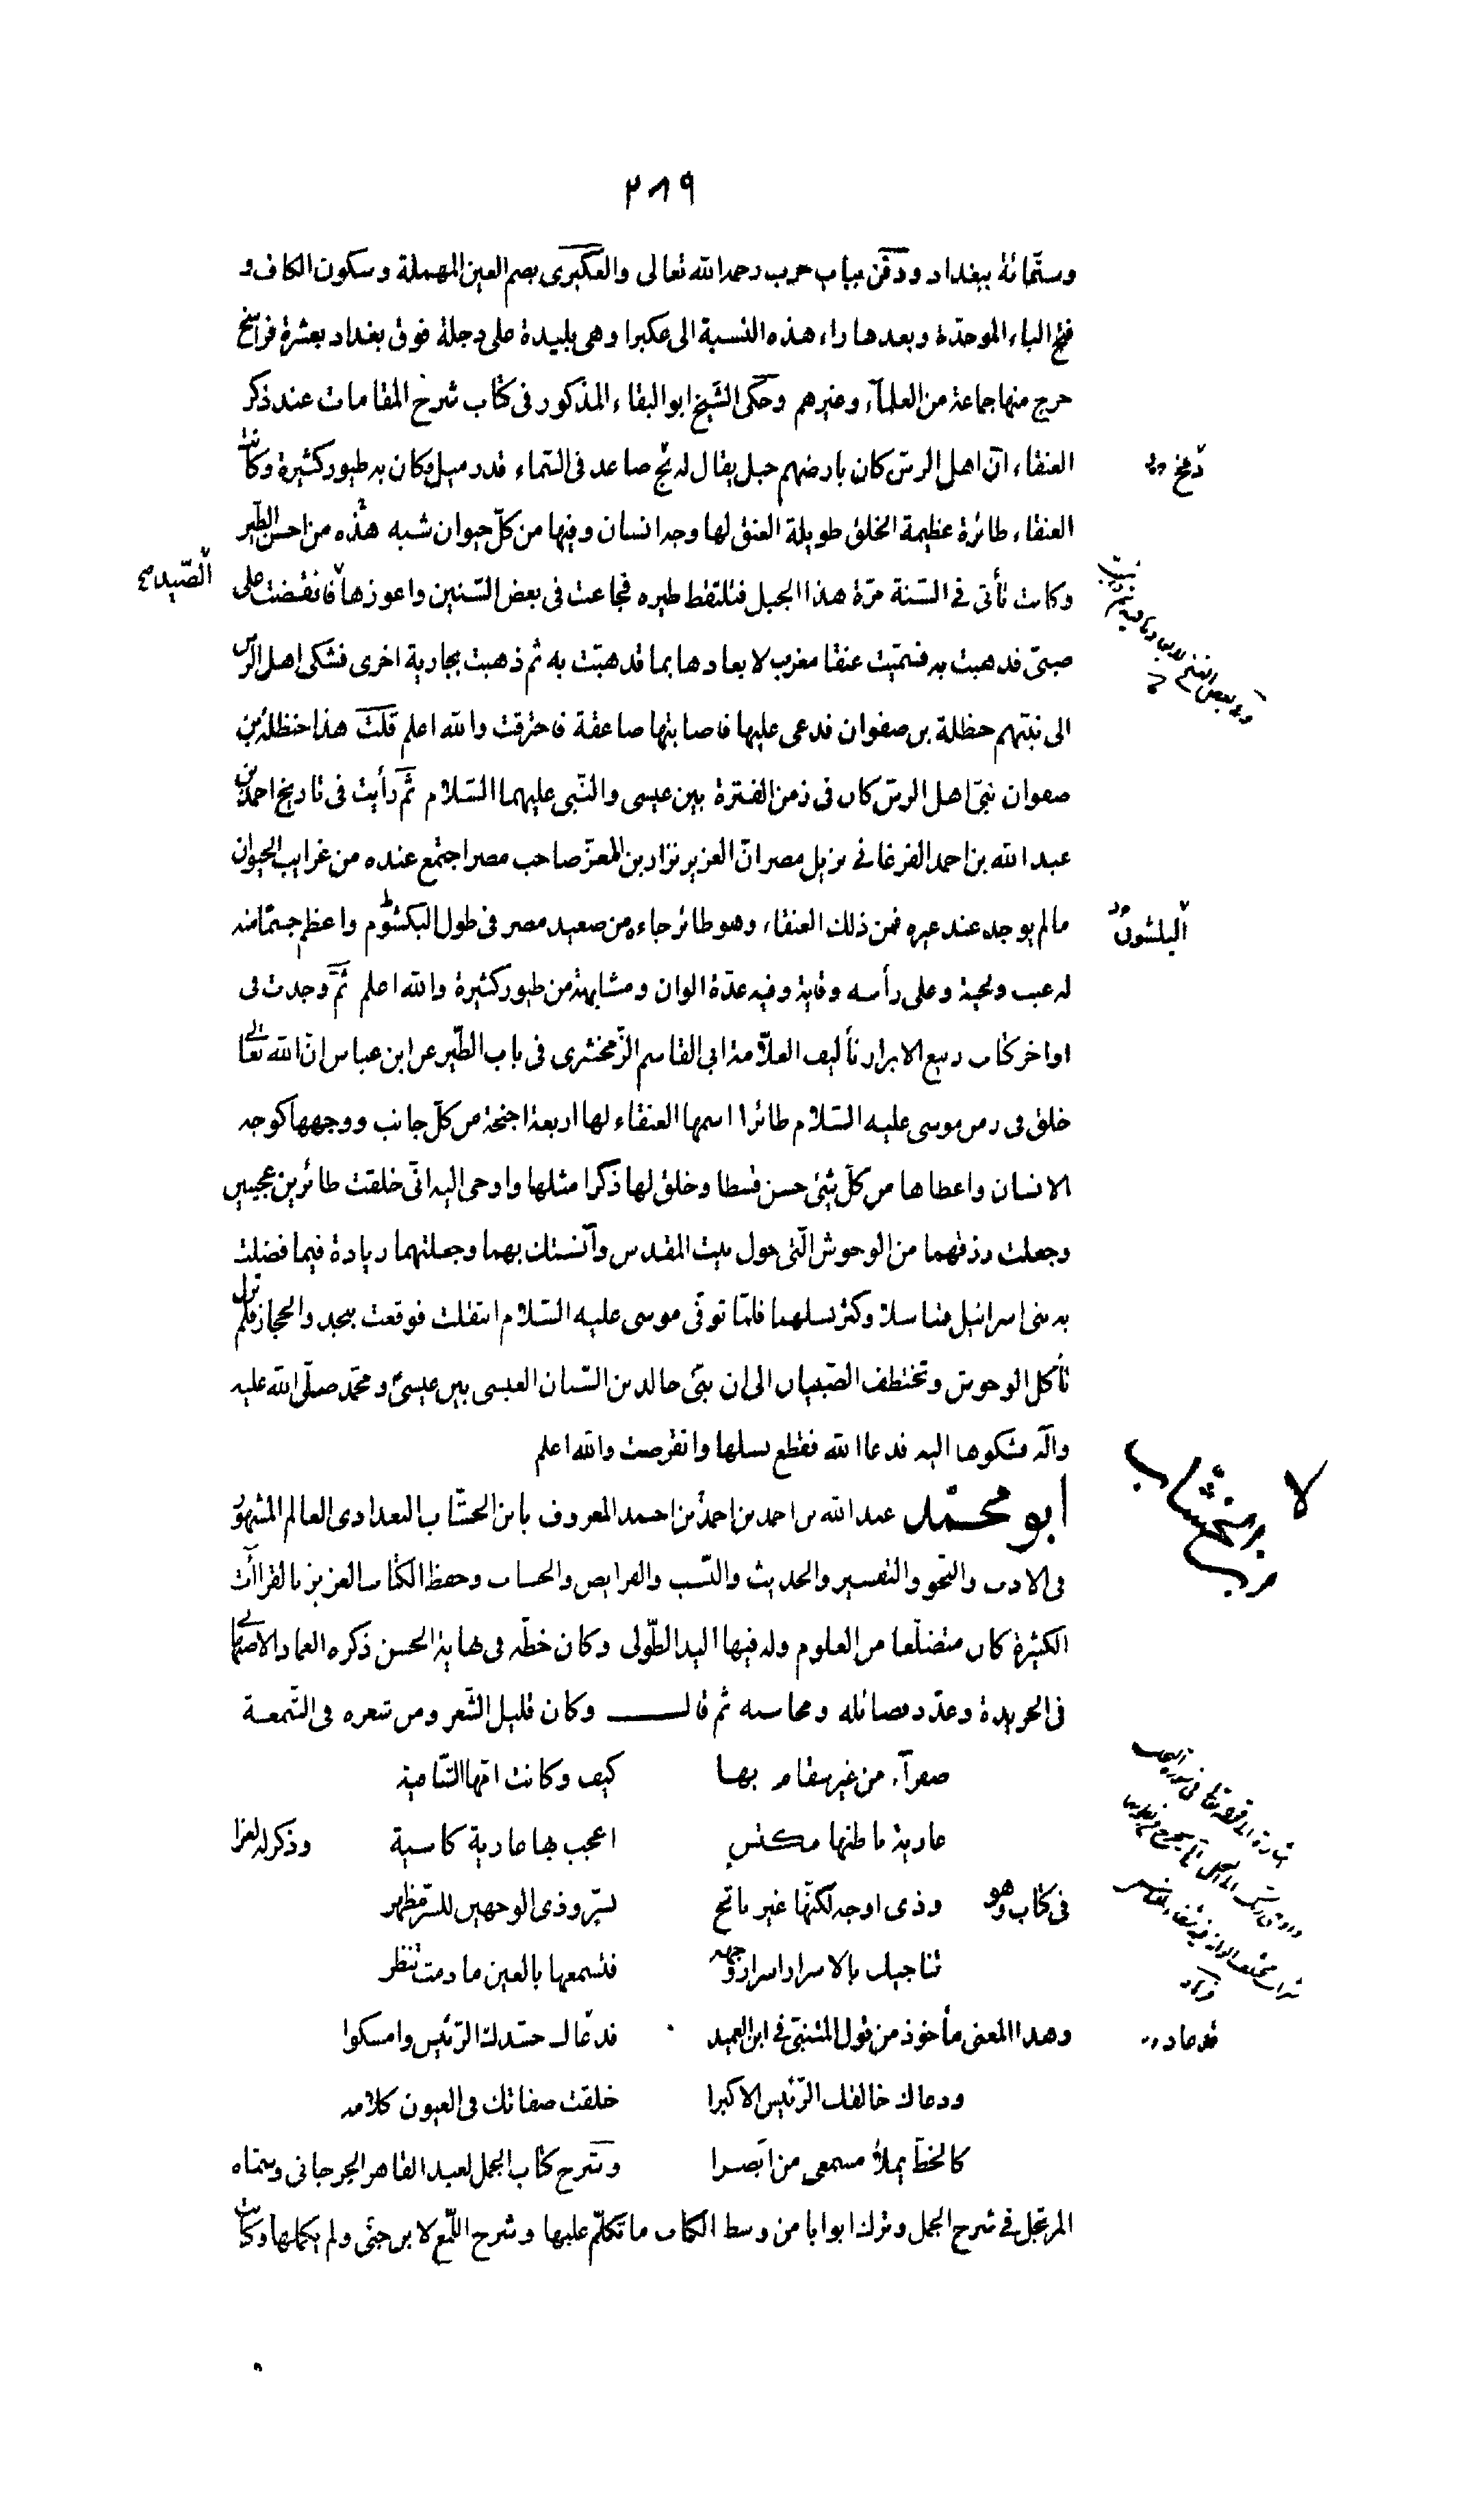 ٢٨٩
وستمائة ببغداد ودفن بباب حرب رحمه الله تعالى والعكبرى بضم العين المهملة وسكون الكاف و
فتح الباء الموحّدة وبعدها راء هذه النسبة الى عكبرا وهى بليدة على دجلة فوق بغداد بعشرة فراسخ
خرج منها جماعة من العلمآء وغيرهم وحكى الشيخ ابو البقاء المذكور فى كتاب شرح المقامات عند ذكر
العنقاء انّ اهل الرسّ كان بارضهم جبل يقال له مخ صاعد فى السّماء قدر ميل وكان به طيور كثيرة وكانت
دمخ
العنقاء طائرة عظيمة الخلق طويلة العنق لها وجه انسان وفيها من كلّ حيوان شبه هذه من احسن الطّير
وكانت تأتى فى السّنة مرّة هذا الجبل فتلتقط طيره فجاعت فى بعض السّنين واعوزها فانقضت على
الصّيد صح
صبىّ فذهبت به فسمّيت عنقا مغرب لابعادها بما تذهبت به ثم ذهبت بجارية اخرى فشكى اهل الرس
الى نبيّهم حظلة بن صفوان فدعى عليها فاصابتها صاعقة فاحترقت والله اعلم قلت هذا حنظلة بن
صفوان نبىّ اهل الرسّ كان فى زمن الفترة بين عيسى والنّبى عليهما السّلام ثمّ رأيت فى تاريخ احمد بن
عبد الله بن احمد الفرغانى نزيل مصر انّ العزيز نزار بن المعزّ صاحب مصر اجتمع عنده من غرايب الحيوان
ما لم يوجد عند غيره فمن ذلك العنقاء وهو طائر جاءه من صعيد مصر فى طول البكشوم واعظم جسمًا منه
البلشون
له غبب ولحية وعلى رأسه وقاية وفيه عدّة الوان ومشابهة من طيور كثيرة والله اعلم ثمّ وجدت فى
اواخر كتاب ربيع الابرار تأليف العلّامة ابى القاسم الزّمخشرى فى باب الطّير عن ابن عباس انّ الله تعالى
خلق فى زمن موسى عليه السّلام طائرا اسمها العنقاء لها اربعة اجنحة من كلّ جانب ووجهها كوجه
الانسان واعطاها من كلّ شئ حسن قسطا وخلق لها ذكرا مثلها واوحى اليه انّى خلقت طائرين عجيبين
وجعلت رزقهما من الوحوش الّتى حول بيت المقدس وآنستك بهما وجعلتهما زيادة فيما فضلت
به بنى اسرائيل فتناسلا وكثر نسلهما فلمّا توفّى موسى عليه السّلام انتقلت فوقعت بنجد والحجاز فلم تزل
تأكل الوحوش وتختطف الصّبيان الى ان نبّئ خالد بن السّنان العبسى بين عيسى ومحمّد صلّى الله عليه
وآله فشكوها اليه فدعا الله فقطع نسلها وانقرضت والله اعلم
ابو محمّد عبد الله بن احمد بن احمد بن احمد المعروف بابن الخشّاب البغدادى العالم المشهور
ابن خشاب
فى الادب والنّحو والتفسير والحديث والنّسب والفرايض والحساب وحفظ الكتاب العزيز بالقراآت
الكثيرة كان متضلّعا من العلوم وله فيها اليد الطّولى وكان خطّه فى نهاية الحسن ذكره العماد الاصبهانى
فى الخريدة وعدّد فضائله ومحاسنه ثم قال وكان قليل الشّعر ومن شعره فى الشّمعة
صفرآء من غير سقام بها كيف وكانت امّها الشّافية
عارية باطنها مكتسٍ اعجب بها عارية كاسية وذكر له لغزا
فى كتاب وهو وذى اوجه لكنّها غير بائح بسرّ وذى الوجهين للسّر مظهر
تناجيك بالاسرار اسرار وجهه فتسمعها بالعين ما دمت تنظر
وهذا المعنى مأخوذ من قول المتنبّى فى ابن العميد فدعاك حسّدك الرّئيس وامسكوا
ودعاك خالقك الرّئيس الاكبرا خلقت صفاتك فى العيون كلامه
كالخطّ يملأ مسمعى من ابصرا وشرح كتاب الجمل لعبد القاهر الجرجانى وسمّاه
المرتجل فى شرح الجمل وترك ابوابا من وسط الكتاب ما تكلّم عليها وشرح اللّمع لابن جنّى ولم يكملها وكانت